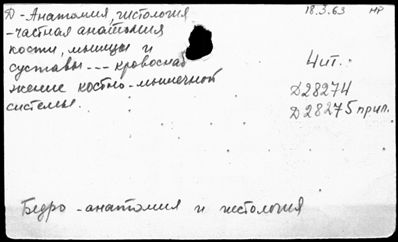 Д - Анатомия, гистология 18.3.63 НР
- частная анатомия
кости, мышцы и
суставы --- кровоснаб
жение костно-мышечной
системы.
4 чит.
Д28274
Д28275 прил.
Бедро - анатомия и гистология